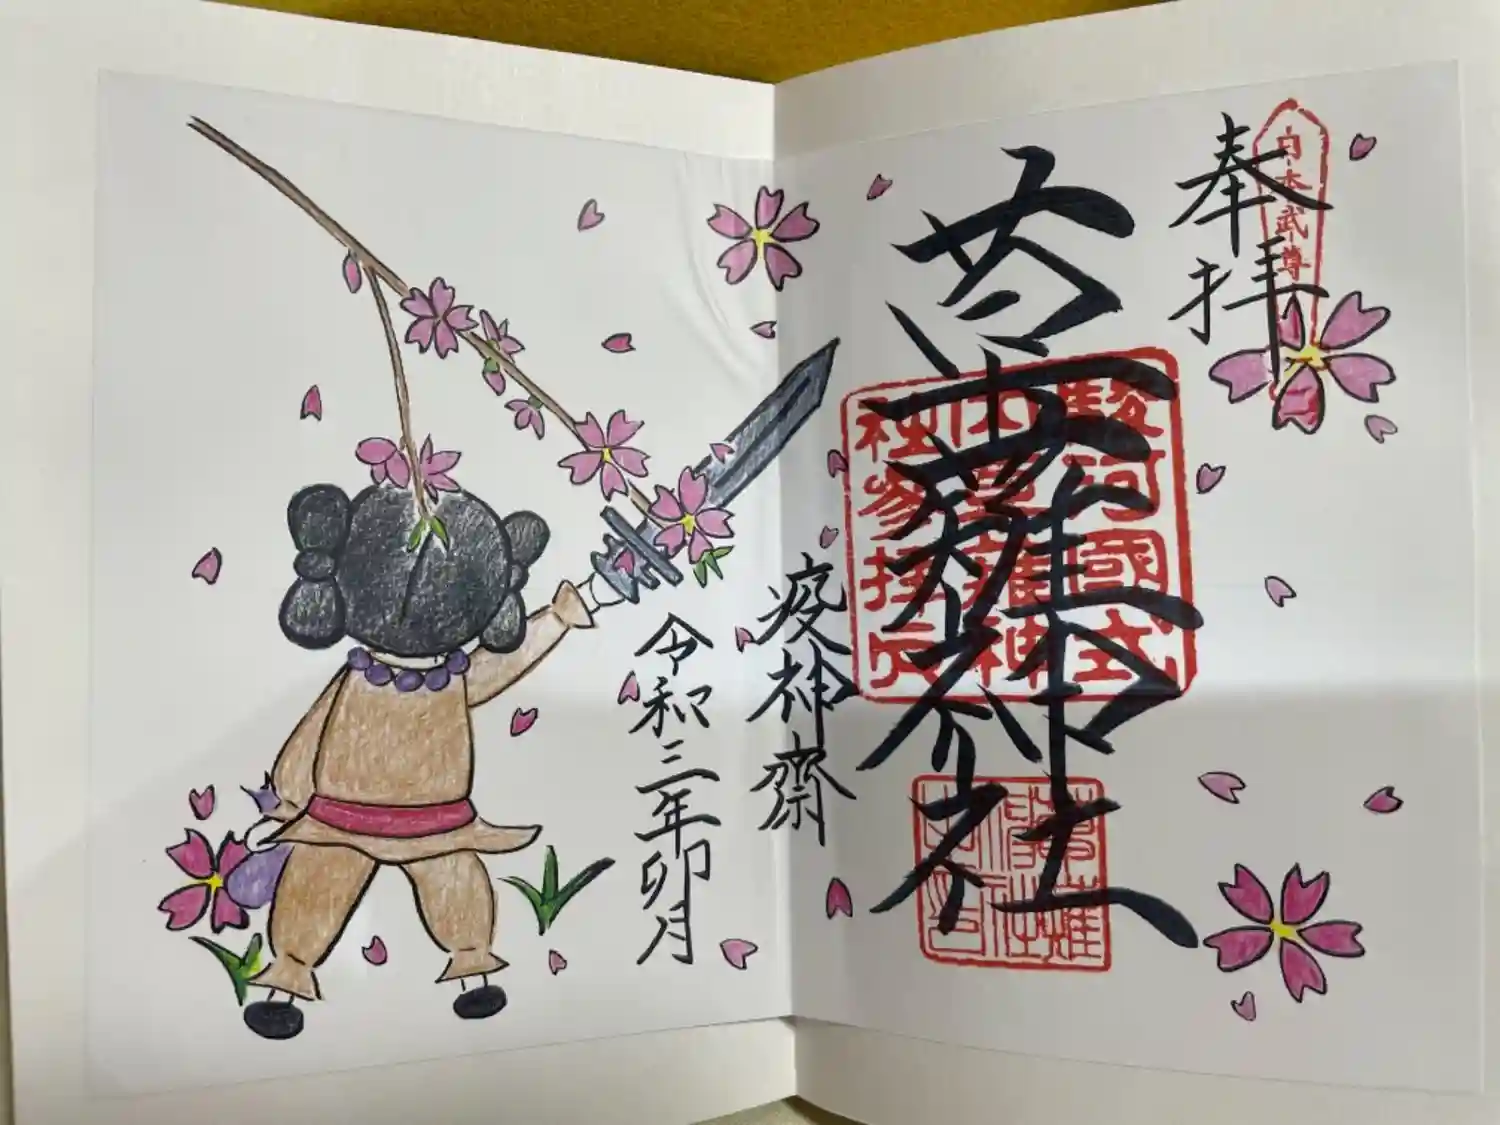 奉拝
日本武尊
草薙神社
駿河國式
内草薙神
社参拝
草薙
神社
之印
疫神齋
令和三年卯月